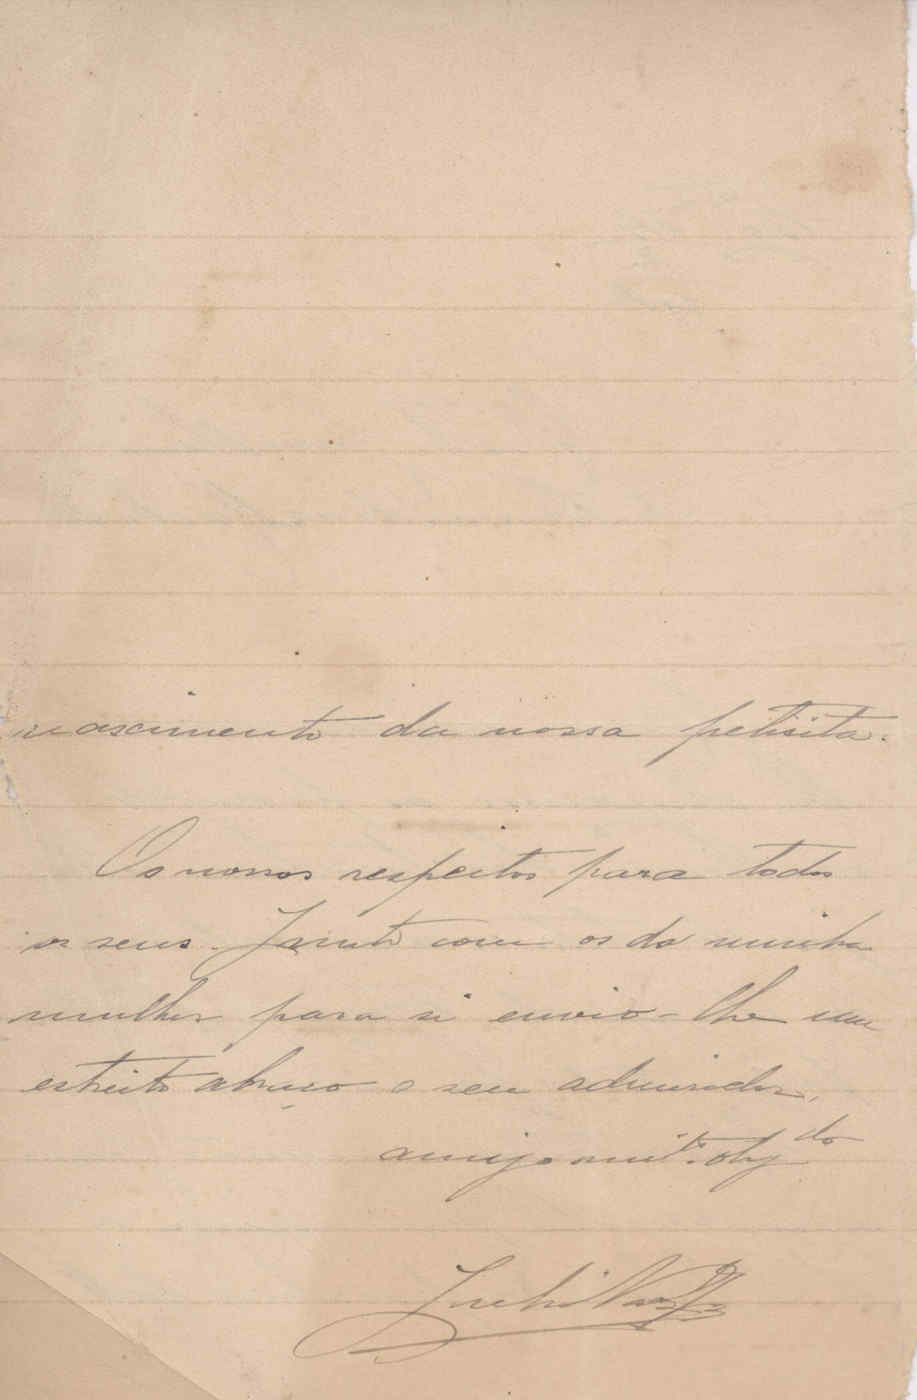 nascimento da nossa petisita.
Os nossos respeitos para todos
os seus. Junto com os da minha
mulher para si envio-lhe um
estreito abraço o seu admirador,
amigo muito. obgdo